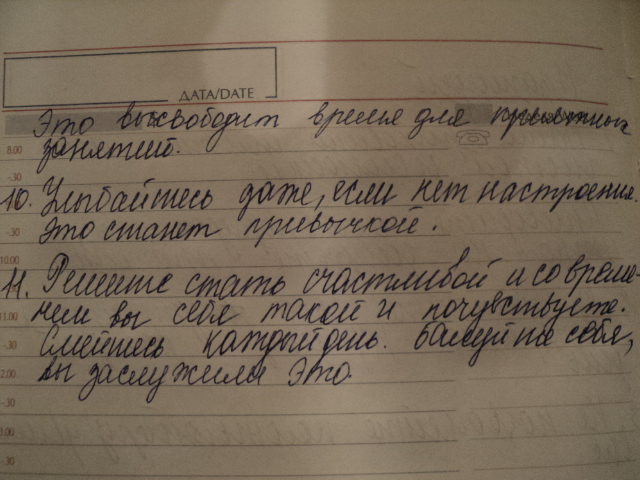 ДАТА/DATE
Это высвободит время для приятных
8.00 занятий.
-30
10. Улыбайтесь даже, если нет настроения.
-30 Это станет привычкой.
10.00
11. Решите стать счастливой и со време-
11.00 нем вы себя такой и почувствуете.
-30 Смейтесь каждый день. Балуйте себя,
12.00 вы заслужили это.
-30
13.00
-30